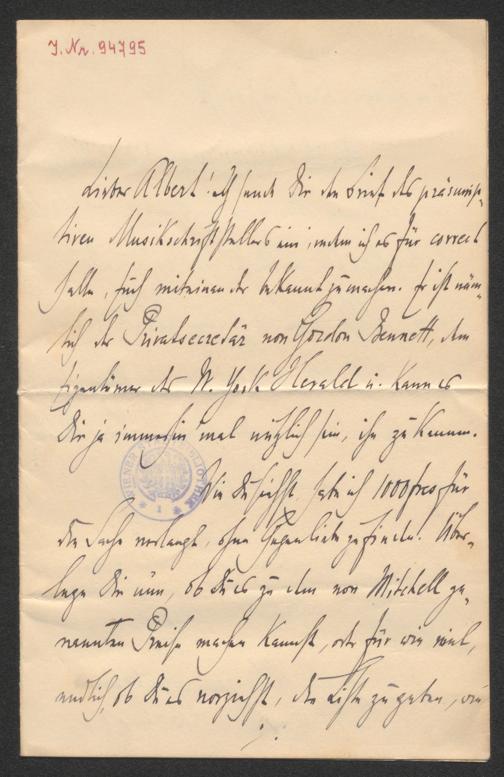 J. Nr. 94795
Lieber Albert! Ich sende Dir den Brief des präsump-
tiven Musikschriftstellers ein, indem ich es für correct
halte, Euch miteinander bekannt zu machen. Er ist näm-
lich der Privatsecretär von Gordon Bennett, dem
Eigentümer des N. York Herald u. kann es
Dir ja immerhin 'mal nützlich sein, ihn zu kennen.
Wie Du siehst, habe ich 1000 frcs für
die Sache verlangt, ohne Gegenliebe zu finden. Über-
lege Dir nun, ob Du es zu dem von Mitchell ge-
nannten Preise machen kannst, oder für wie viel,
endlich, ob Du es vorziehst, die Liste zu geben, wo
./.
WIENER BIBLIOTHEK
1